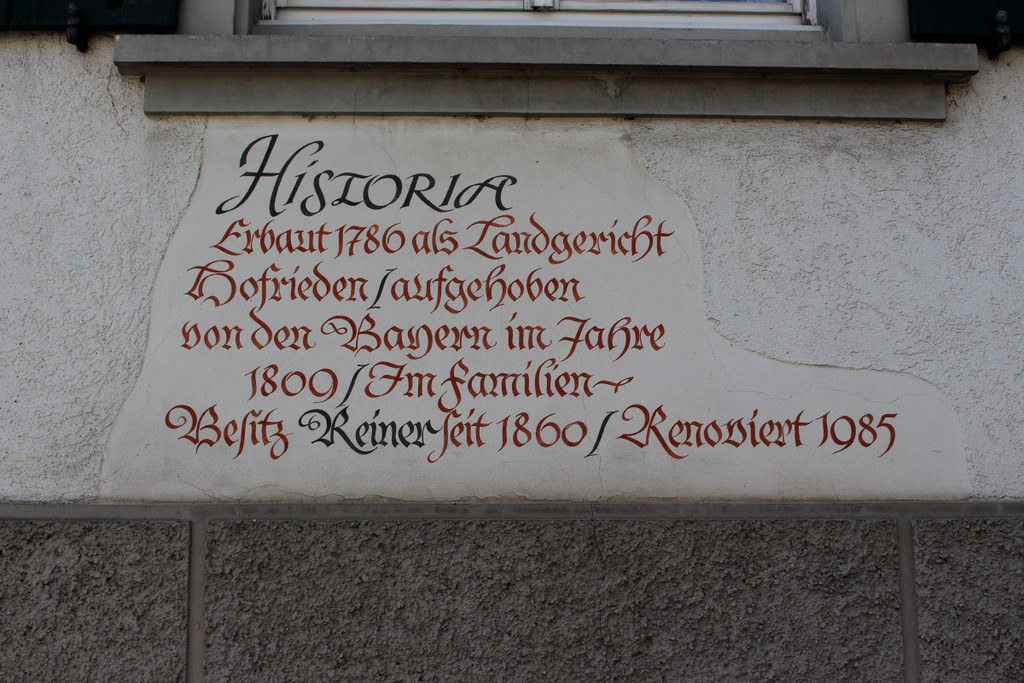 Historia
Erbaut 1786 als Landgericht
Hofrieden / aufgehoben
von den Bayern im Jahre
1809 / Im Familien~
Besitz Reiner seit 1860 / Renoviert 1985